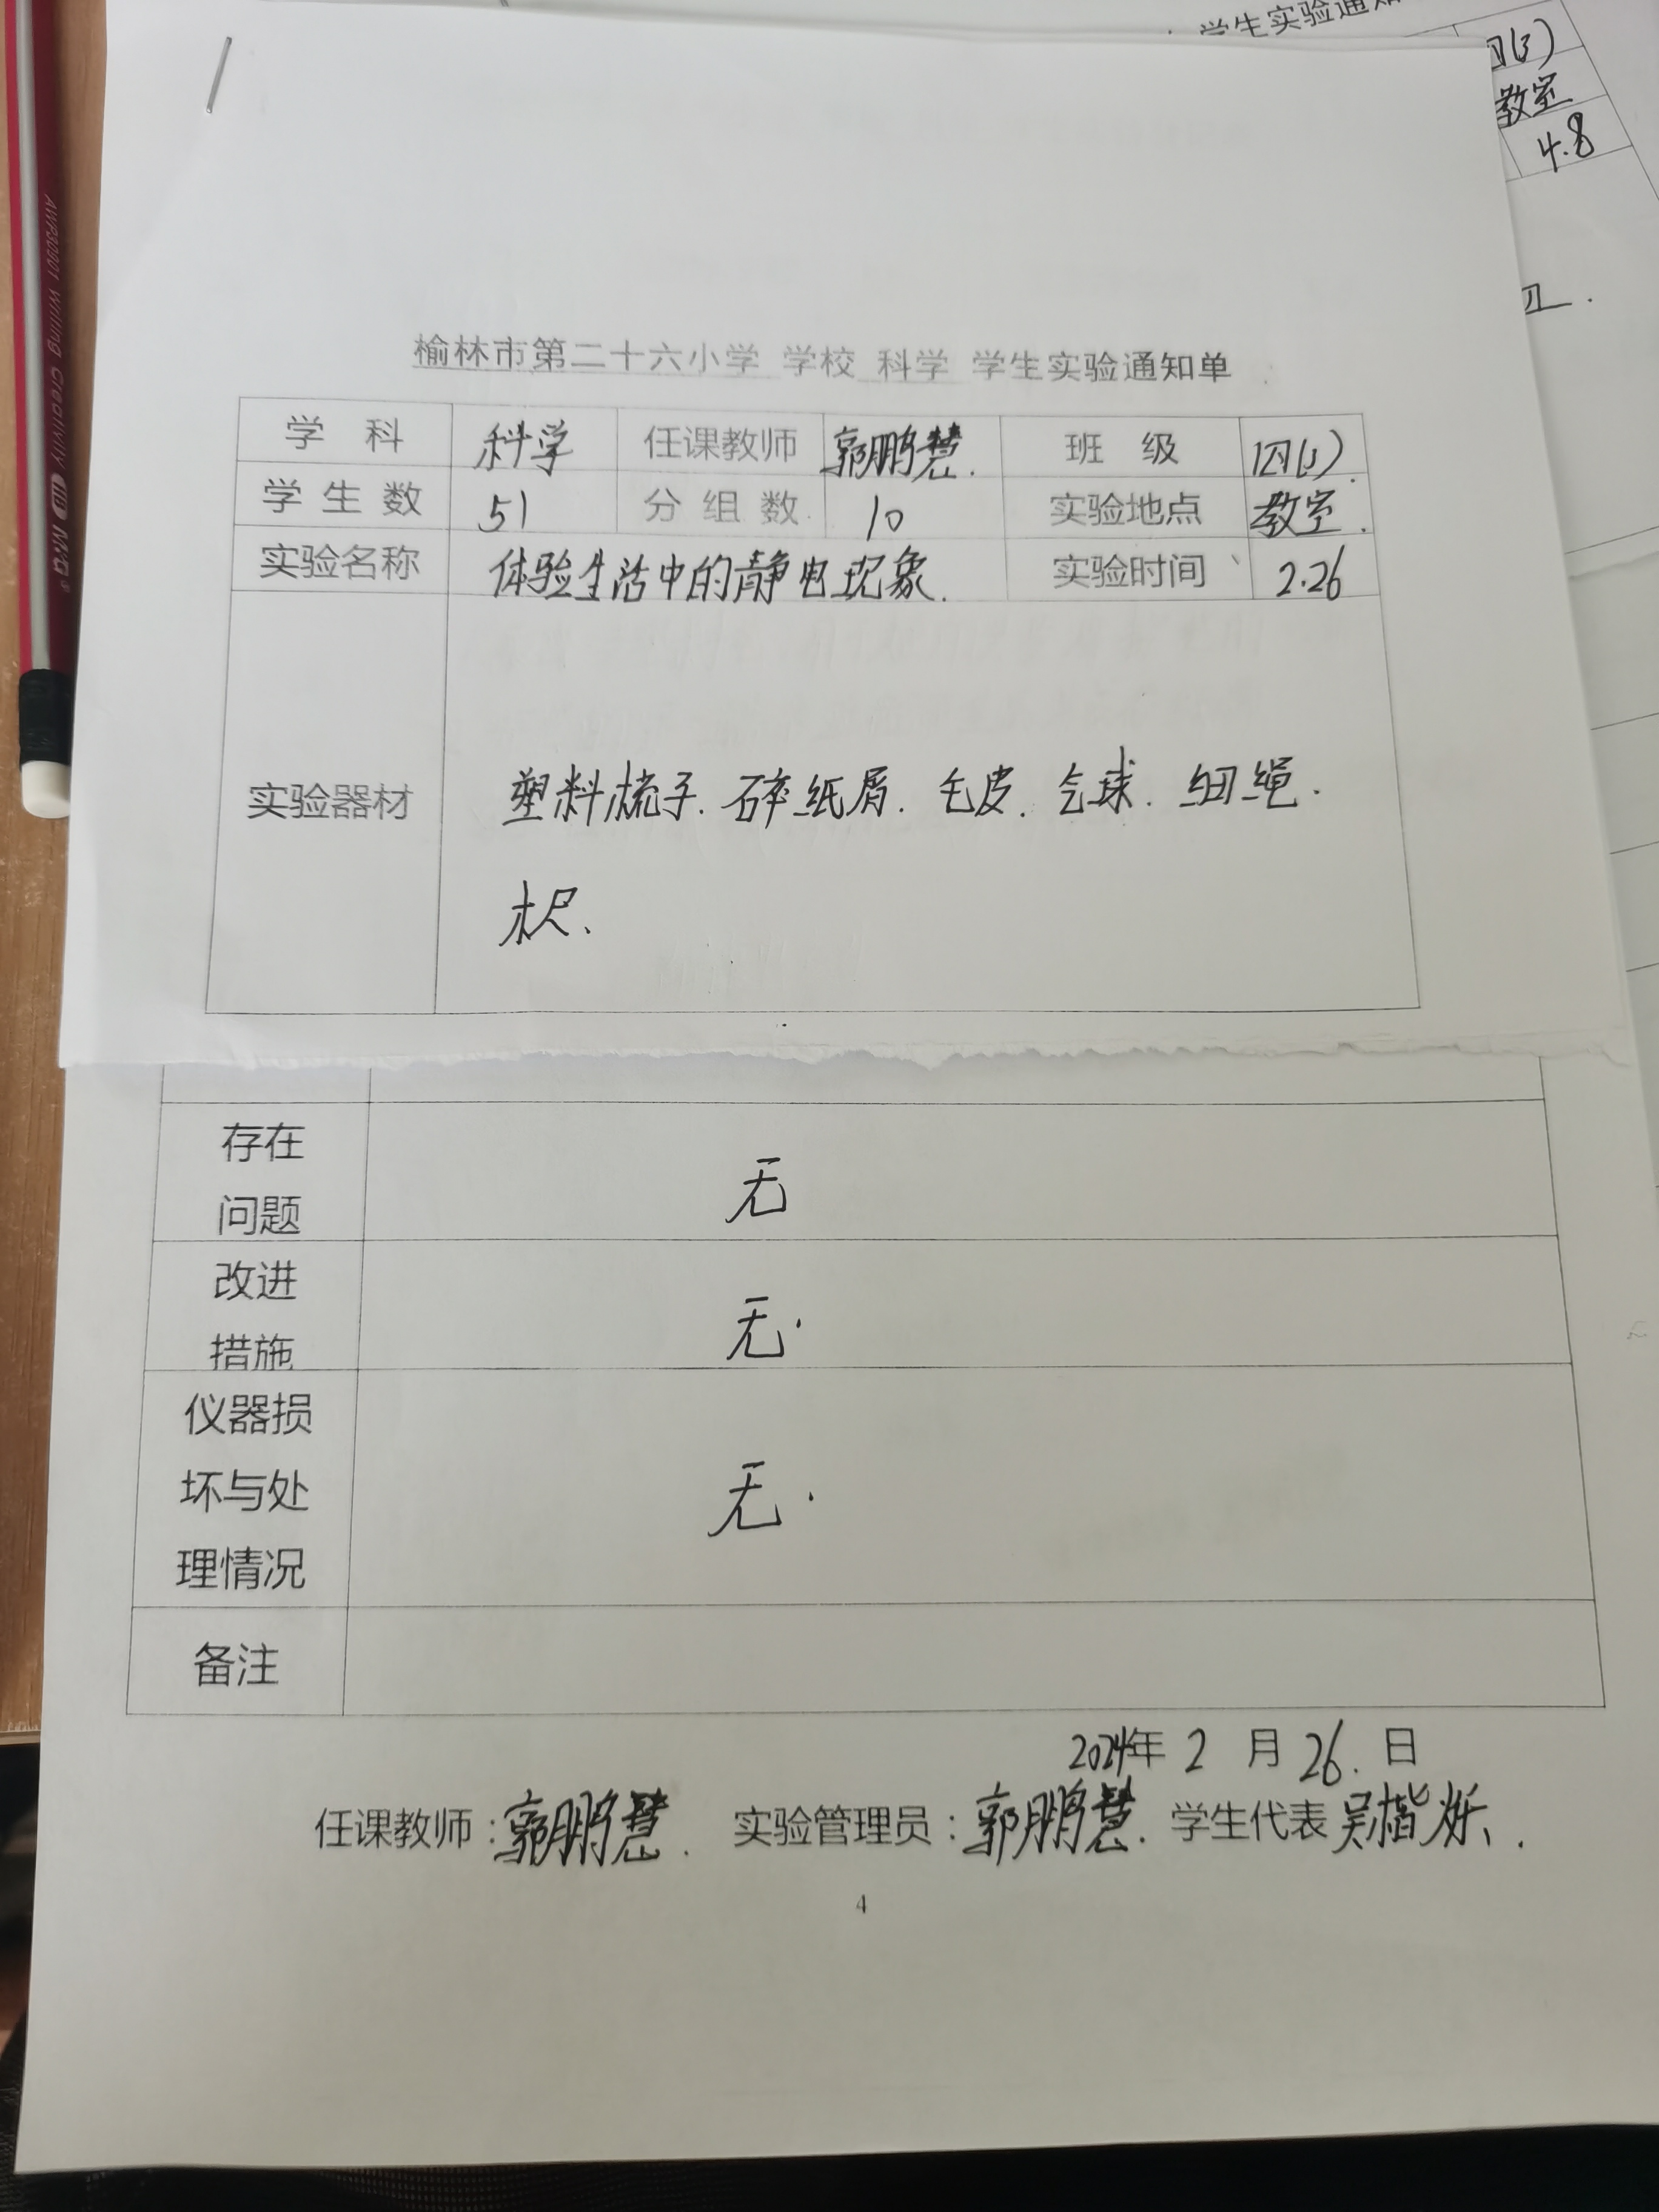 学生实验通知
四(3)
教室
4.8
榆林市第二十六小学 学校 科学 学生实验通知单
学 科 科学 任课教师 郭鹏慧. 班 级 四(1).
学 生 数 51 分 组 数 10 实验地点 教室.
实验名称 体验生活中的静电现象. 实验时间 2.26
实验器材 塑料梳子. 碎纸屑. 毛皮. 气球. 细绳.
木尺、
存在
问题 无
改进
措施 无.
仪器损
坏与处
理情况 无.
备注
2024年 2 月 26. 日
任课教师:郭鹏慧. 实验管理员:郭鹏慧. 学生代表 吴楷
4
AWP30901 Writing Creativity M&G